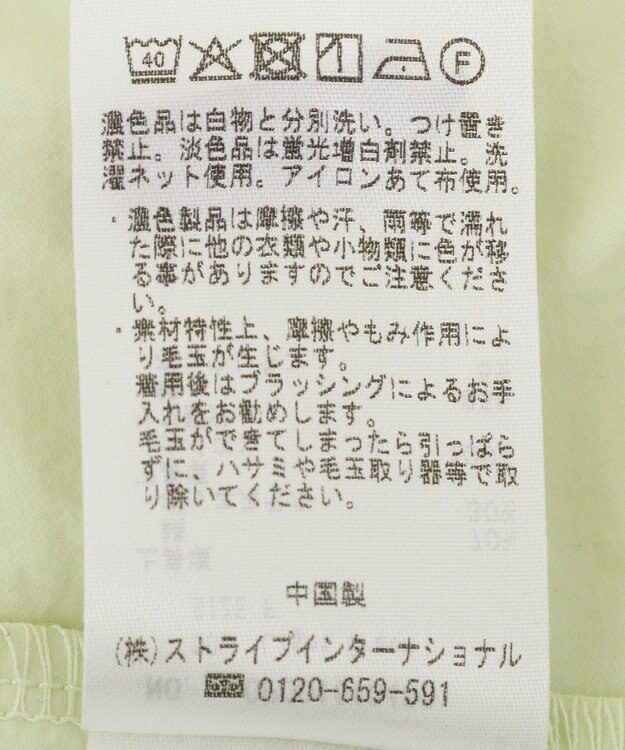 40
1
F
濃色品は白物と分別洗い。つけ置き
禁止。淡色品は蛍光増白剤禁止。洗
濯ネット使用。アイロンあて布使用。
・濃色製品は摩擦や汗、雨等で濡れ
た際に他の衣類や小物類に色が移
る事がありますのでご注意くださ
い。
・素材特性上、摩擦やもみ作用によ
り毛玉が生じます。
着用後はブラッシングによるお手
入れをお勧めします。
毛玉ができてしまったら引っぱら
ずに、ハサミや毛玉取り器等で取
り除いてください。
中国製
(株)ストライプインターナショナル
0120-659-591